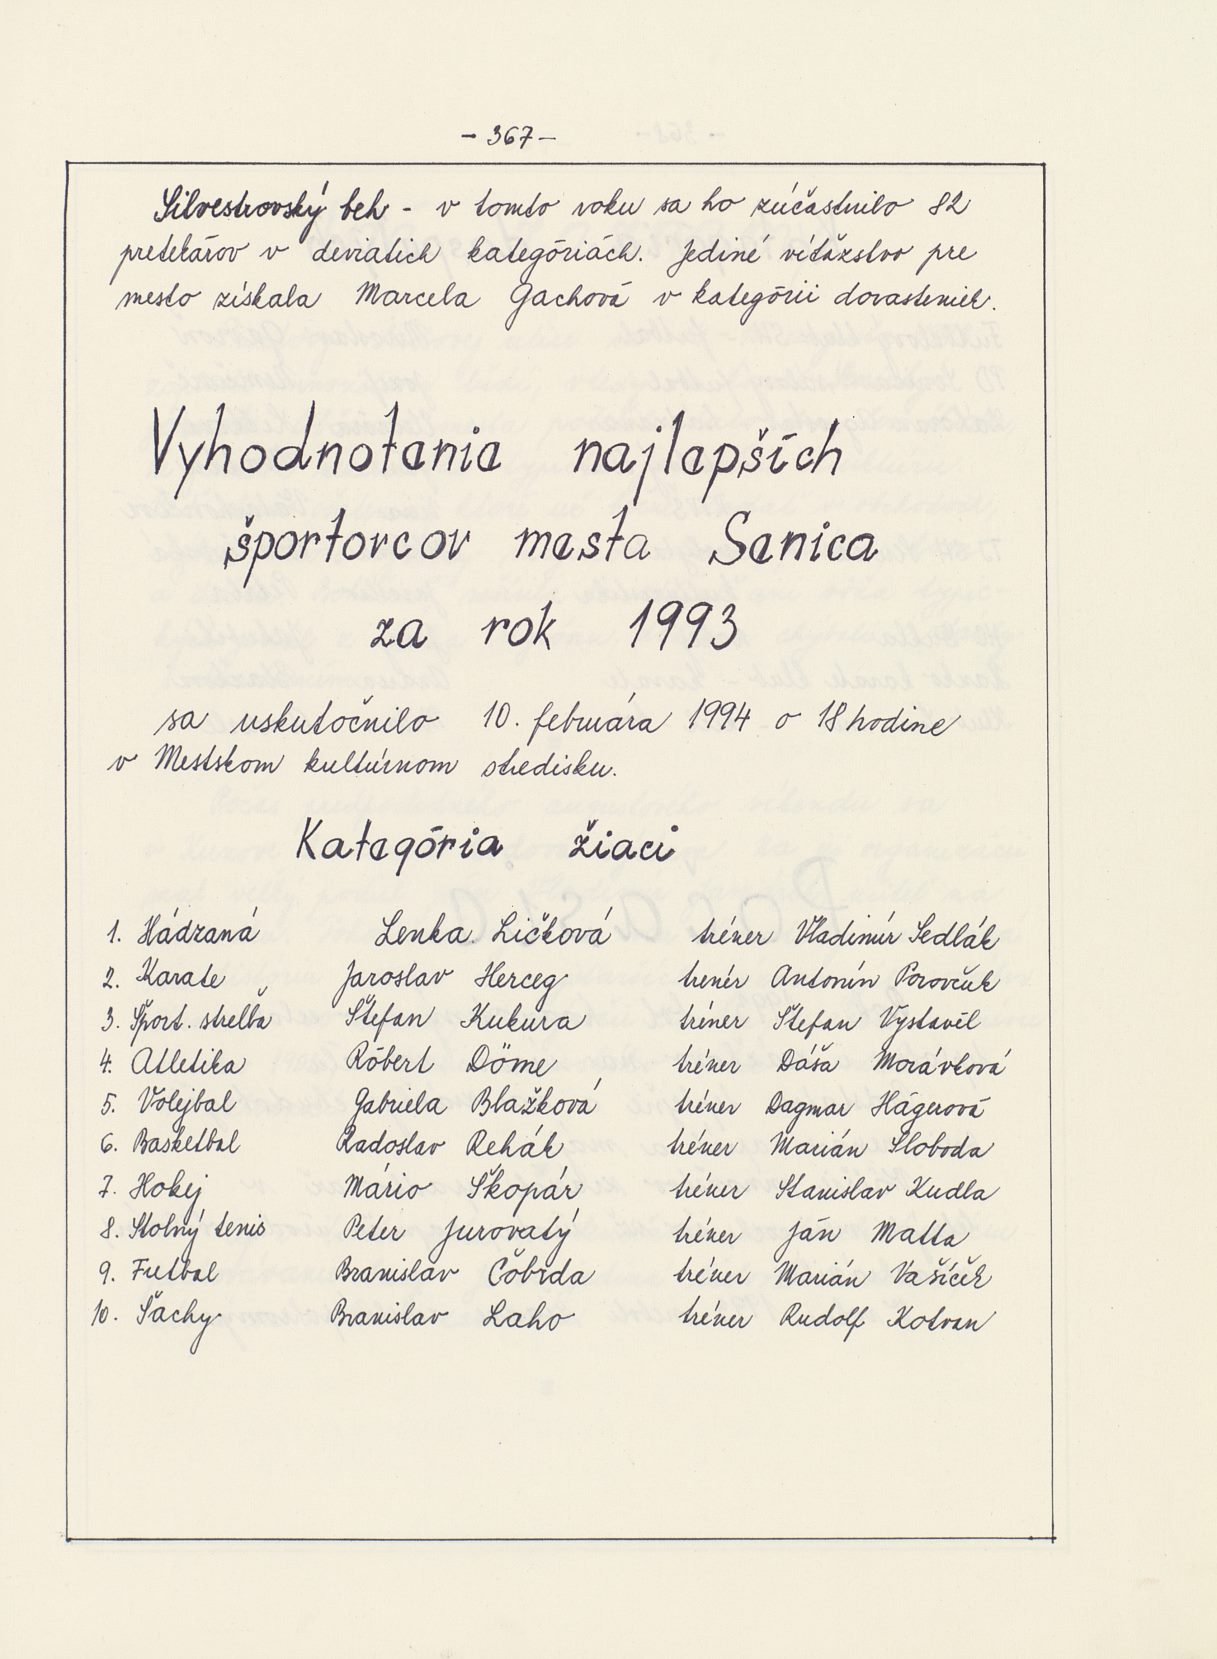 - 367 -
Silvestrovský beh - v tomto roku sa ho zúčastnilo 82
pretekárov v deviatich kategóriách. Jediné víťazstvo pre
mesto získala Marcela Gachová v kategórii dorasteniek.
Vyhodnotenie najlepších
športovcov mesta Senica
za rok 1993
sa uskutočnilo 10. februára 1994 o 18 hodine
v Mestskom kultúrnom stredisku.
Kategória žiaci
1. Hádzaná Lenka Ličková tréner Vladimír Sedlák
2. Karate Jaroslav Herceg trenér Antonín Porovčuk
3. Šport. streľba Štefan Kukura tréner Štefan Vystavěl
4. Atletika Róbert Döme tréner Dáša Morávková
5. Volejbal Gabriela Blažková tréner Dagmar Hágerová
6. Basketbal Radoslav Rehák tréner Marián Sloboda
7. Hokej Mário Škopár tréner Stanislav Kudla
8. Stolný tenis Peter Jurovatý tréner Ján Matta
9. Futbal Branislav Čobrda tréner Marián Vašíček
10. Šachy Branislav Laho tréner Rudolf Kotvan